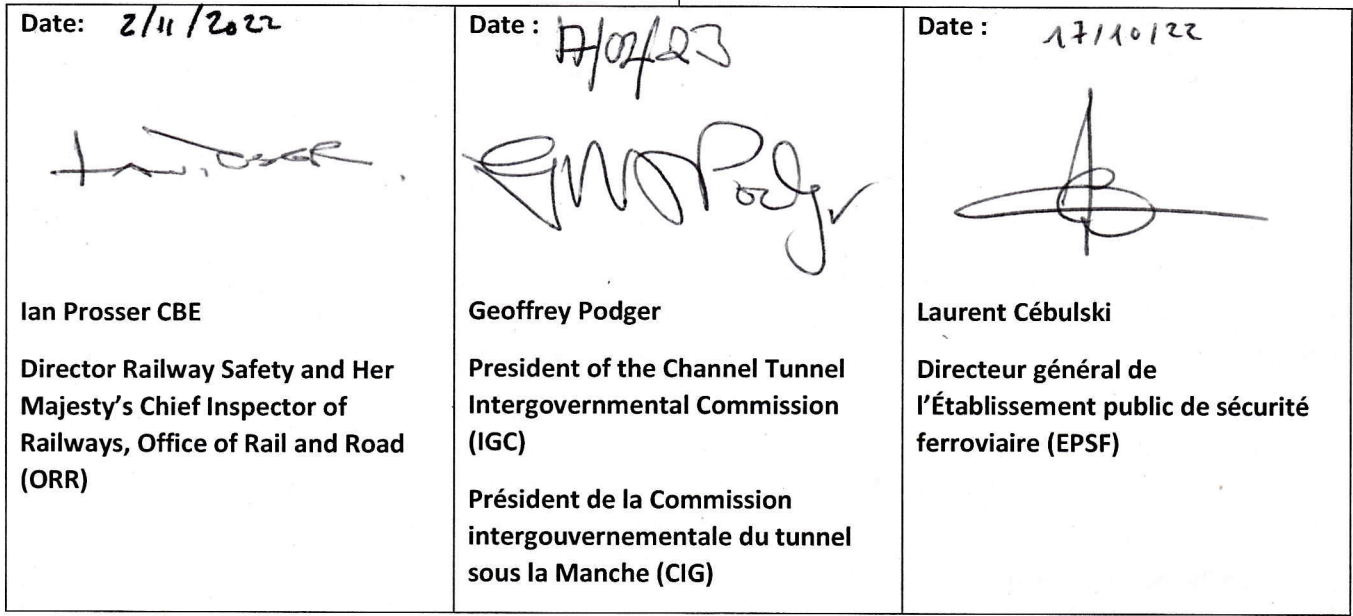 Date: 2/11/2022
Ian Prosser CBE
Director Railway Safety and Her
Majesty's Chief Inspector of
Railways, Office of Rail and Road
(ORR)
Date : 17/02/23
GNF Podger
Geoffrey Podger
President of the Channel Tunnel
Intergovernmental Commission
(IGC)
Président de la Commission
intergouvernementale du tunnel
sous la Manche (CIG)
Date : 17/10/22
Laurent Cébulski
Directeur général de
l'Établissement public de sécurité
ferroviaire (EPSF)